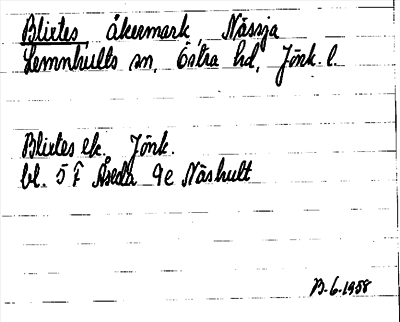 Blixtes, åkermark, Nässja
Lemnhults sn, Östra hd, Jönk. l.
Blixtes ek. Jönk.
bl. 5 F Åseda 9e Näshult
B. 6. 1958